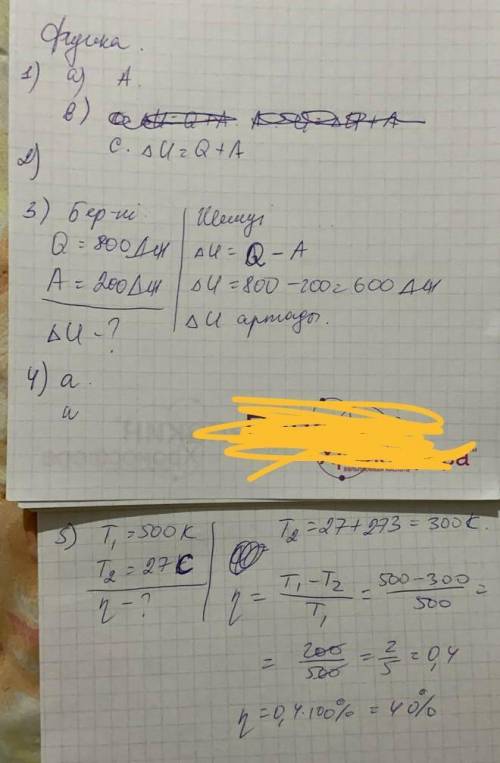 Физика.
1) а) А.
в)
С. ΔU = Q + A
2)
3) Бер-ні
Q = 800 Дж
A = 200 Дж
ΔU - ?
Шешуі
ΔU = Q - A
ΔU = 800 - 200 = 600 Дж
ΔU артады.
4) а.
5) T₁ = 500 K
T₂ = 27 C
η - ?
T₂ = 27 + 273 = 300 K.
η = (T₁ - T₂)/T₁ = (500 - 300)/500 =
= 200/500 = 2/5 = 0,4
η = 0,4 · 100% = 40%